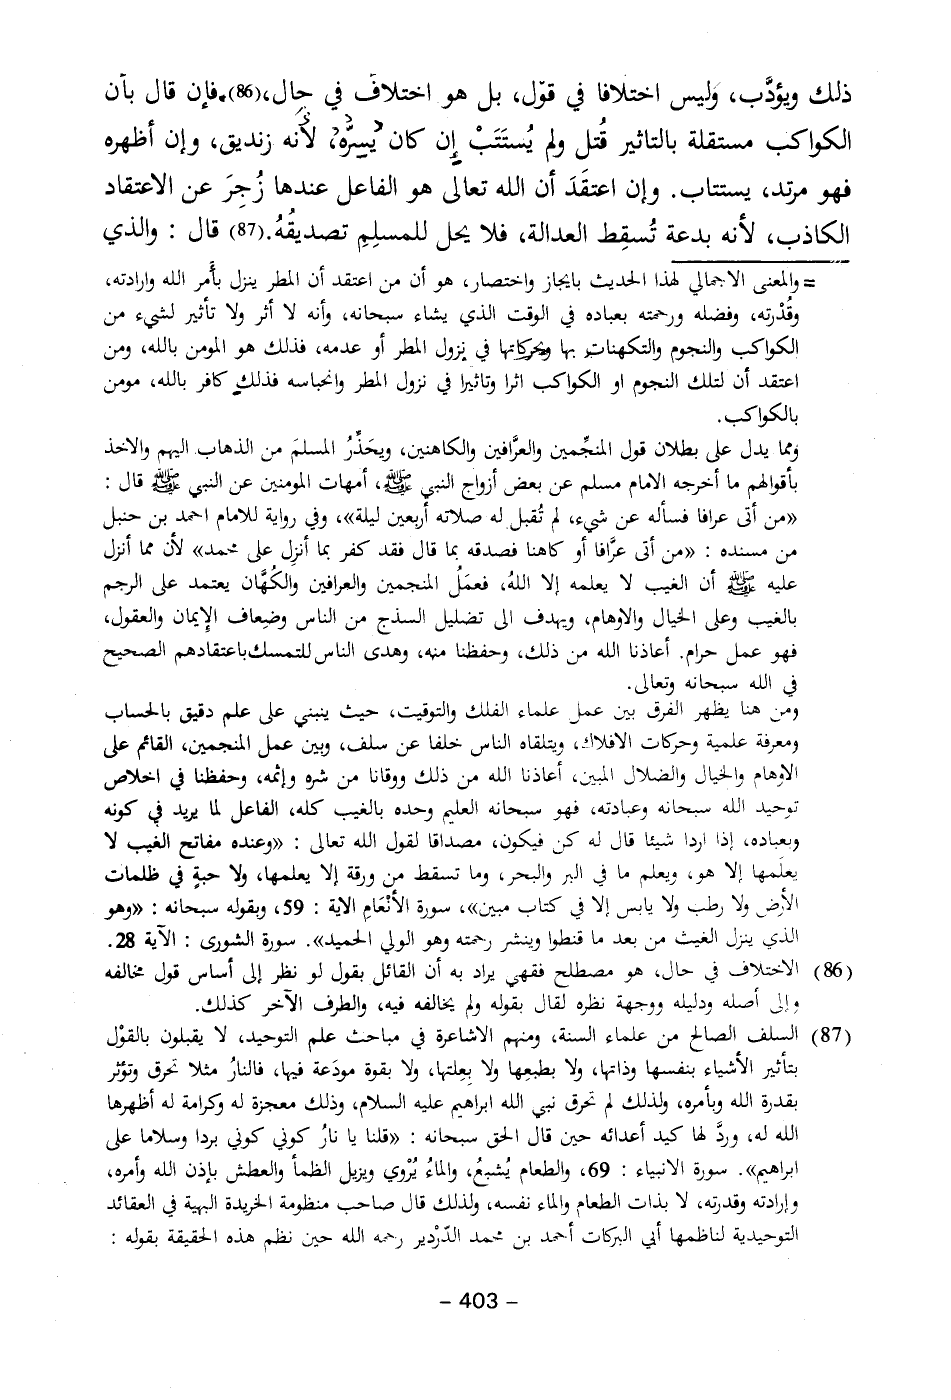 ذلك ويؤدَّب، وليس اختلافا في قوْل، بل هو اختلافٌ في حال،(86) فإن قال بأن
الكواكب مستقلة بالتاثير قُتل ولم يُستَتَبْ إن كان يُسِرُّه، لأنه زنديق، وإن أظهره
فهو مرتد، يستتاب. وإن اعتقَدَ أن الله تعالى هو الفاعل عندها زُجِرَ عن الاعتقاد
الكاذب، لأنه بدعة تُسقِط العدالة، فلا يحل للمسلِمِ تصديقُهُ.(87) قال : والذي
= والمعنى الاجمالي لهذا الحديث بايجاز واختصار، هو أن من اعتقد أن المطر ينزل بأمر الله وارادته،
وقُدْرته، وفضله ورحمته بعباده في الوقت الذي يشاء سبحانه، وأنه لا أثر ولا تأثير لشيء من
الكواكب والنجوم والتكهنات بها وبحركاتها في نزول المطر أو عدمه، فذلك هو المومن بالله، ومن
اعتقد أن لتلك النجوم او الكواكب اثرا وتاثيرا في نزول المطر وانحباسه فذلك كافر بالله، مومن
بالكواكب.
ومما يدل على بطلان قول المنجِّمين والعرَّافين والكاهنين، ويحَذِّرُ المسلمَ من الذهاب اليهم والاخذ
بأقوالهم ما أخرجه الامام مسلم عن بعض أزواج النبي ﷺ، أمهات المومنين عن النبي ﷺ قال :
«من أتى عرافا فسأله عن شيء، لم تُقبل له صلاته أربعين ليلة»، وفي رواية للامام احمد بن حنبل
من مسنده : «من أتى عرَّافا أو كاهنا فصدقه بما قال فقد كفر بما أنزِل على محمد» لأن مما أنزل
عليه ﷺ أن الغيب لا يعلمه إلا اللهُ، فعمَلُ المنجمين والعرافين والكُهَّان يعتمد على الرجم
بالغيب وعلى الخيال والاوهام، ويهدف الى تضليل السذج من الناس وضِعاف الإيمان والعقول،
فهو عمل حرام. أعاذنا الله من ذلك، وحفظنا منه، وهدى الناس للتمسك باعتقادهم الصحيح
في الله سبحانه وتعالى.
ومن هنا يظهر الفرق بين عمل علماء الفلك والتوقيت، حيث ينبني على علم دقيق بالحساب
ومعرفة علمية وحركات الافلاك، ويتلقاه الناس خلفا عن سلف، وبين عمل المنجمين، القائم على
الاوهام والخيال والضلال المبين، أعاذنا الله من ذلك ووقانا من شره وإثمه، وحفظنا في اخلاص
توحيد الله سبحانه وعبادته، فهو سبحانه العليم وحده بالغيب كله، الفاعل لما يريد في كونه
وبعباده، إذا اردا شيئا قال له كن فيكون، مصداقا لقول الله تعالى : «وعنده مفاتح الغيب لا
يعلَمها إلا هو، ويعلم ما في البر والبحر، وما تسقط من ورقة إلا يعلمها، ولا حبةٍ في ظلمات
الأرض ولا رطب ولا يابس إلا في كتاب مبين»، سورة الأنْعَام الاية : 59، وبقوله سبحانه : «وهو
الذي ينزل الغيث من بعد ما قنطوا وينشر رحمته وهو الولي الحميد». سورة الشورى : الآية 28.
(86) الاختلاف في حال، هو مصطلح فقهي يراد به أن القائل بقول لو نظر إلى أساس قول مخالفه
وإلى أصله ودليله ووجهة نظره لقال بقوله ولم يخالفه فيه، والطرف الآخر كذلك.
(87) السلف الصالح من علماء السنة، ومنهم الاشاعرة في مباحث علم التوحيد، لا يقبلون بالقوْل
بتأثير الأشياء بنفسها وذاتها، ولا بطبعِها ولا بِعِلتها، ولا بقوة مودَعة فيها، فالنارُ مثلا تحرق وتوْثر
بقدرة الله وبأمره، ولذلك لم تحرق نبي الله ابراهيم عليه السلام، وذلك معجزة له وكرامة له أظهرها
الله له، وردَّ لها كيد أعدائه حين قال الحق سبحانه : «قلنا يا نارُ كوني كوني بردا وسلاما على
ابراهيم». سورة الانبياء : 69، والطعام يُشبعُ، والماءُ يُرْوي ويزيل الظمأ والعطش بإذن الله وأمره،
وإرادته وقدرته، لا بذات الطعام والماء نفسه، ولذلك قال صاحب منظومة الخريدة البهية في العقائد
التوحيدية لناظمها أبي البركات أحمد بن محمد الدّردير رحمه الله حين نظم هذه الحقيقة بقوله :
- 403 -